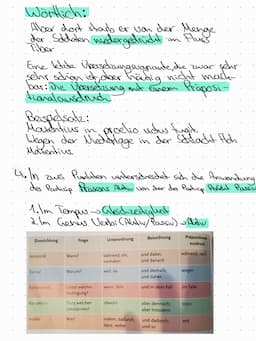 Wörtlich:
Aber dort starb er von der Menge
der Soldaten niedergedrückt im Fluss
Tiber
Eine letzte Übersetzungsmethode, die zwar sehr
sehr schön ist, aber häufig nicht mach-
bar: Die Übersetzung mit einem Präposi-
tionalausdruck
Beispielsatz:
Maxentius in proelio victus fugit.
Wegen der Niederlage in der Schlacht floh
Maxentius
4. In zwei Punkten unterscheidet sich die Anwendung
des Partizip Präsens Aktiv von der des Partizip Perfekt Passiv
1. Im Tempus → Gleichzeitigkeit
2. Im Genus Verbi (Aktiv/Passiv) → Aktiv
Einrichtung Frage Unterordnung Beiordnung Präpositionalausdruck
Wann? während, als, nachdem und dabei, und danach während, nach
Warum? weil, da und deshalb, und daher wegen
wenn, falls und in dem Fall im Falle
Trotz welcher obwohl aber dennoch, aber trotzdem trotz
Wie? indem, dadurch, dass, wobei und dadurch, und so mit